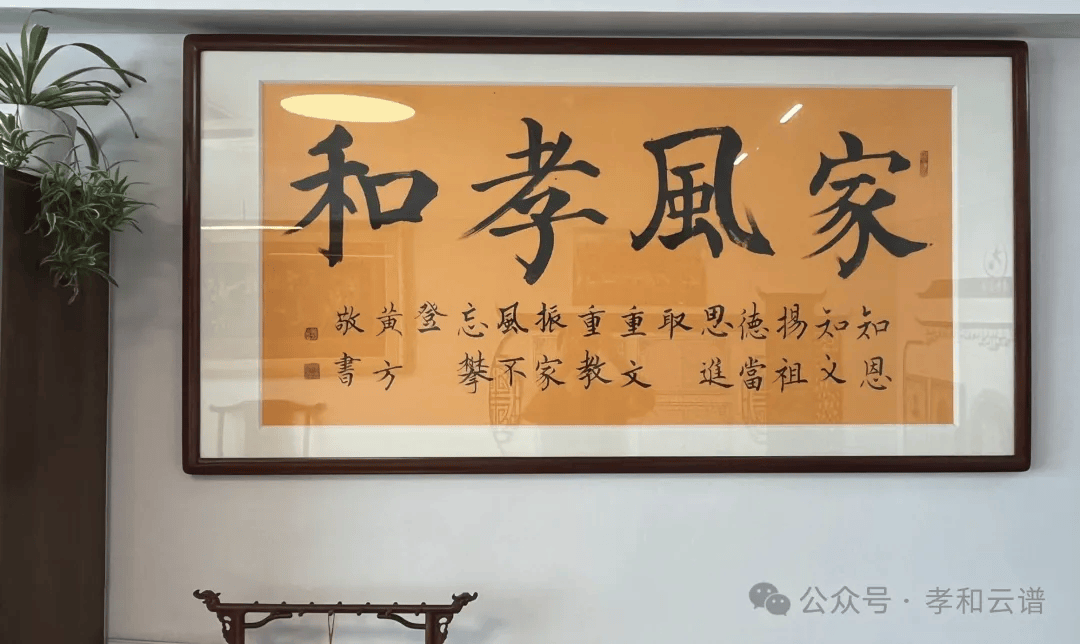 家風孝和
知恩
知义
揚祖
德當
思進
取
重文
重教
振家
風不
忘攀
登
黄方
敬書
公众号·孝和云谱